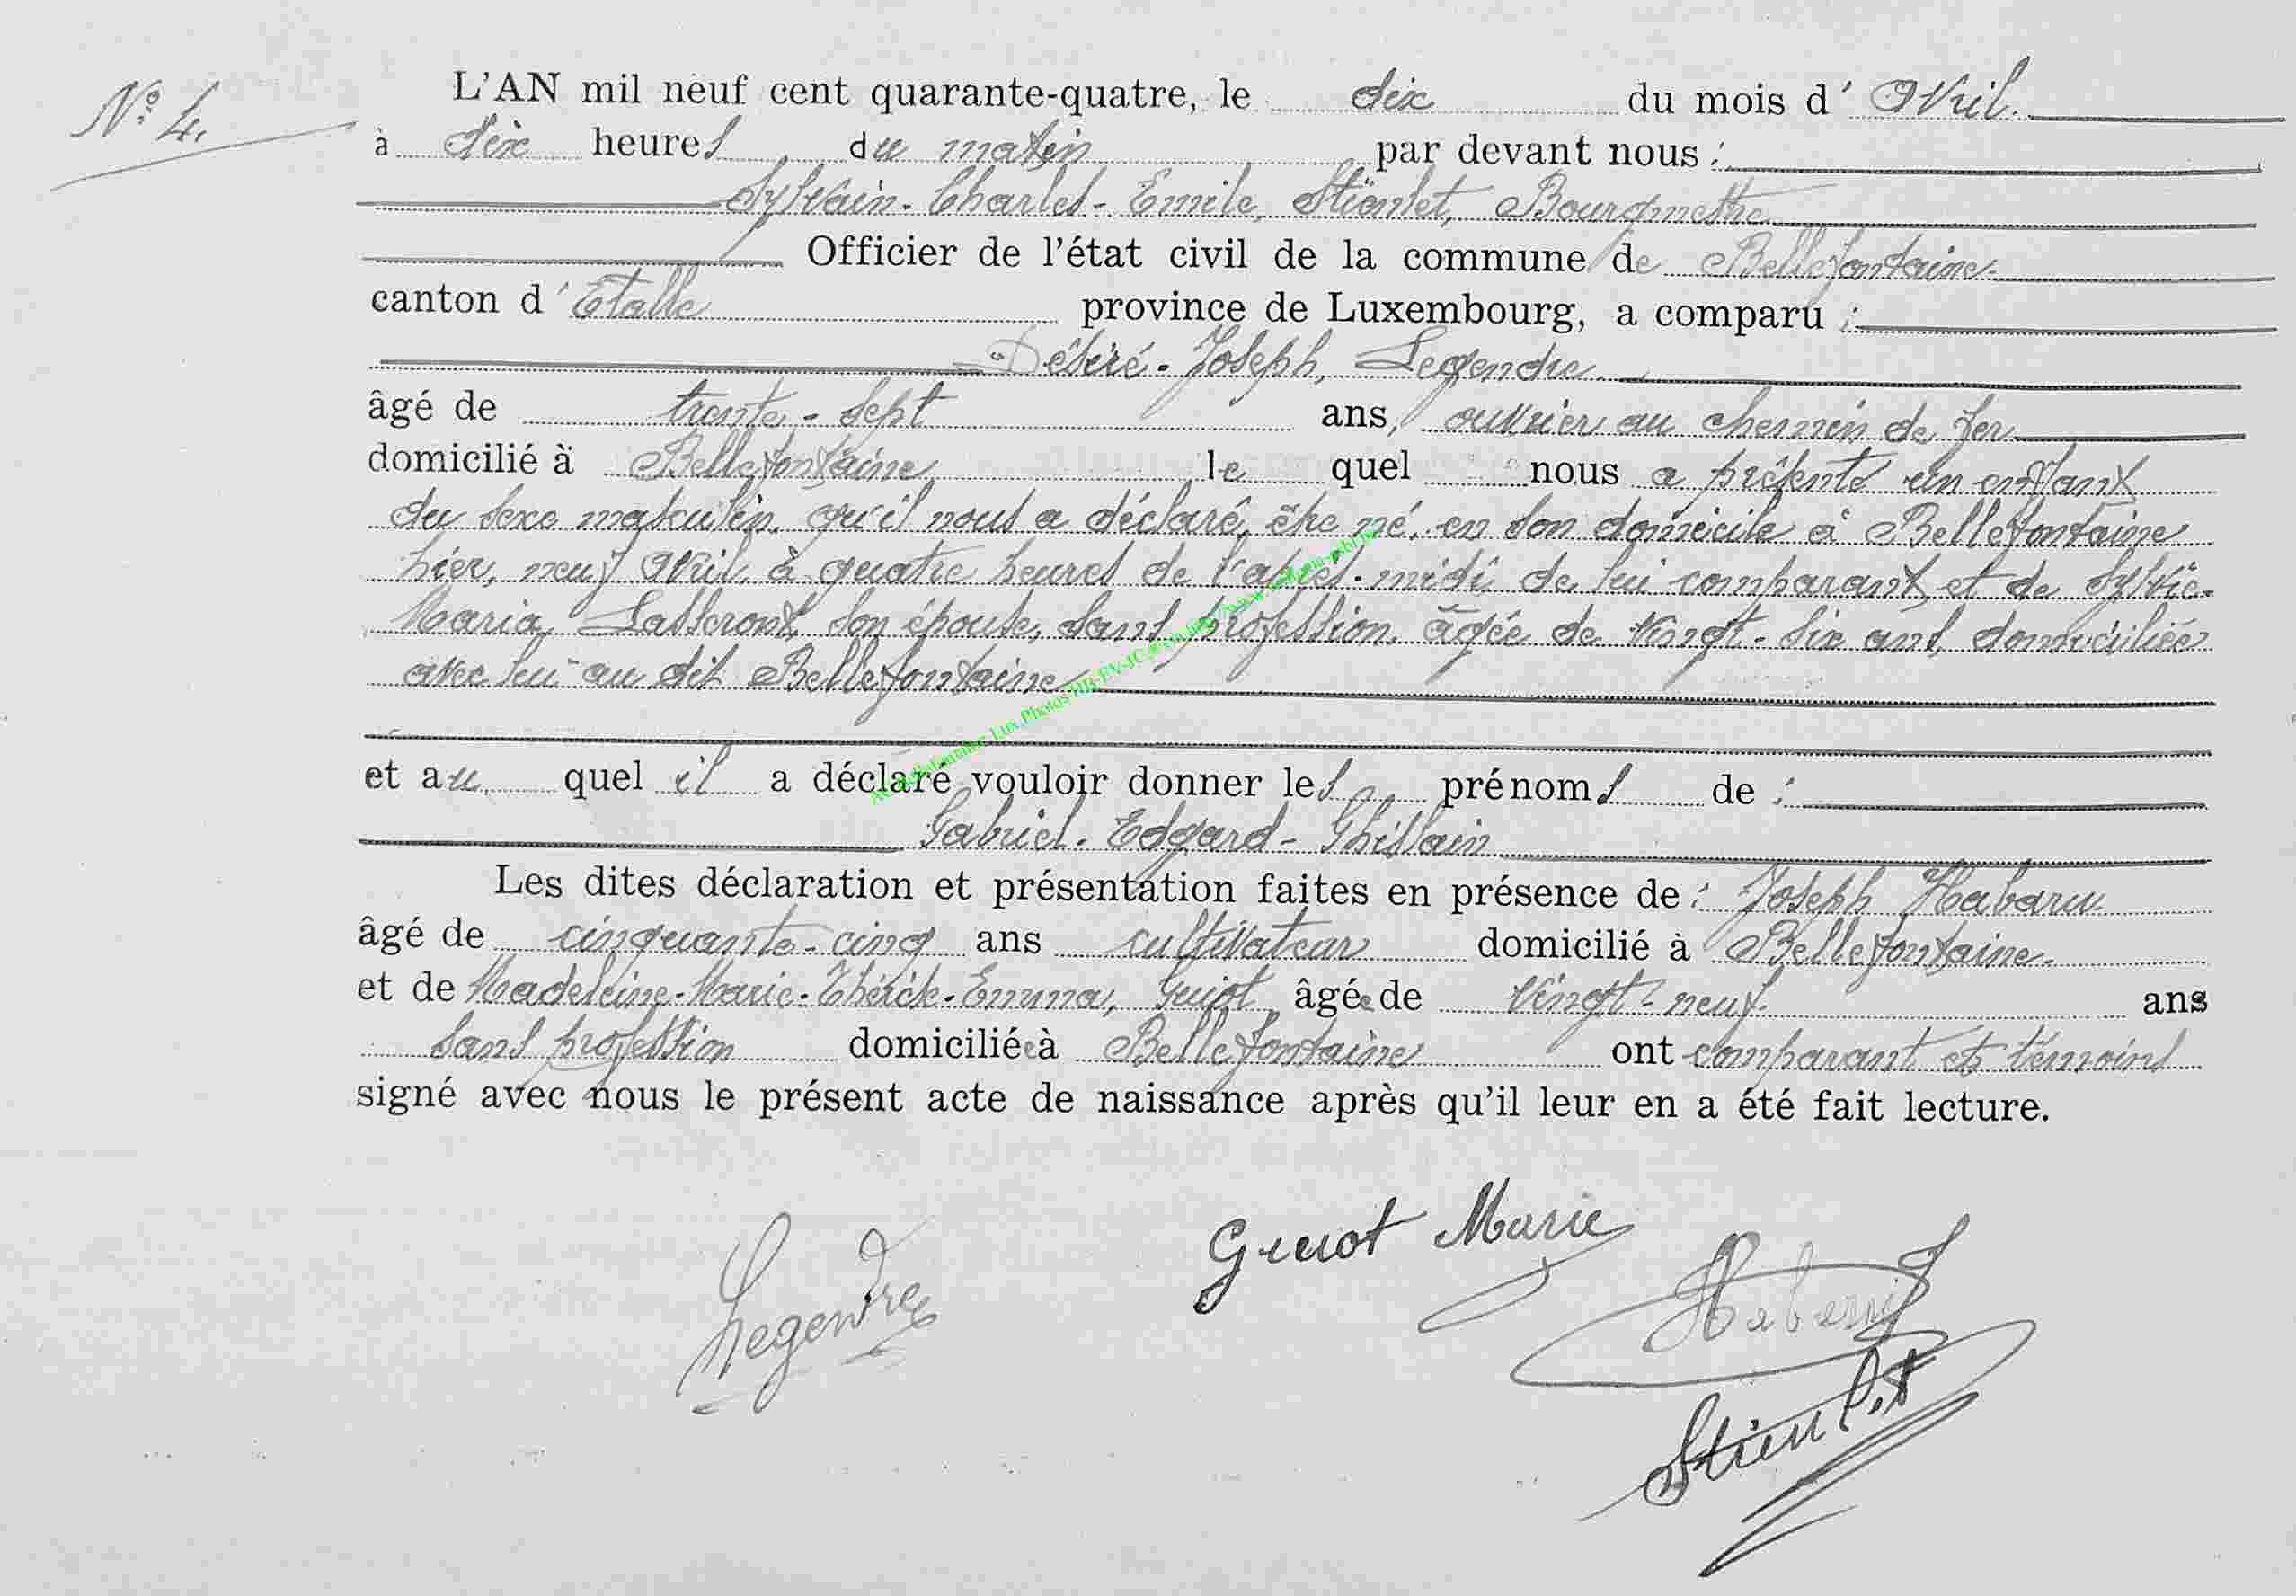 N° 4.
L'AN mil neuf cent quarante-quatre, le dix du mois d' Avril.
à dix heures du matin par devant nous :
Sylvain-Charles-Emile, Stiénlet, Bourgmestre
Officier de l'état civil de la commune de Bellefontaine
canton d'Etalle province de Luxembourg, a comparu :
Désiré-Joseph, Legendre
âgé de trente-sept ans, ouvrier au chemin de fer
domicilié à Bellefontaine lequel nous a présenté un enfant
du sexe masculin, qu'il nous a déclaré, être né, en son domicile à Bellefontaine
hier, neuf Avril, à quatre heures de l'après-midi de lui comparant et de Sylvie-
Maria, son épouse, sans profession, âgée de vingt-six ans, domiciliée
avec lui au dit Bellefontaine
et auquel il a déclaré vouloir donner les prénoms de :
Gabriel-Edgard-Ghislain
Les dites déclaration et présentation faites en présence de : Joseph Habaru
âgé de cinquante-cinq ans cultivateur domicilié à Bellefontaine
et de Madeleine-Marie-Thérèse-Emma, Guiot âgée de vingt-neuf ans
sans profession domiciliée à Bellefontaine ont comparant et témoins
signé avec nous le présent acte de naissance après qu'il leur en a été fait lecture.
Guiot Marie
Legendre
Habaru J
Stiénlet